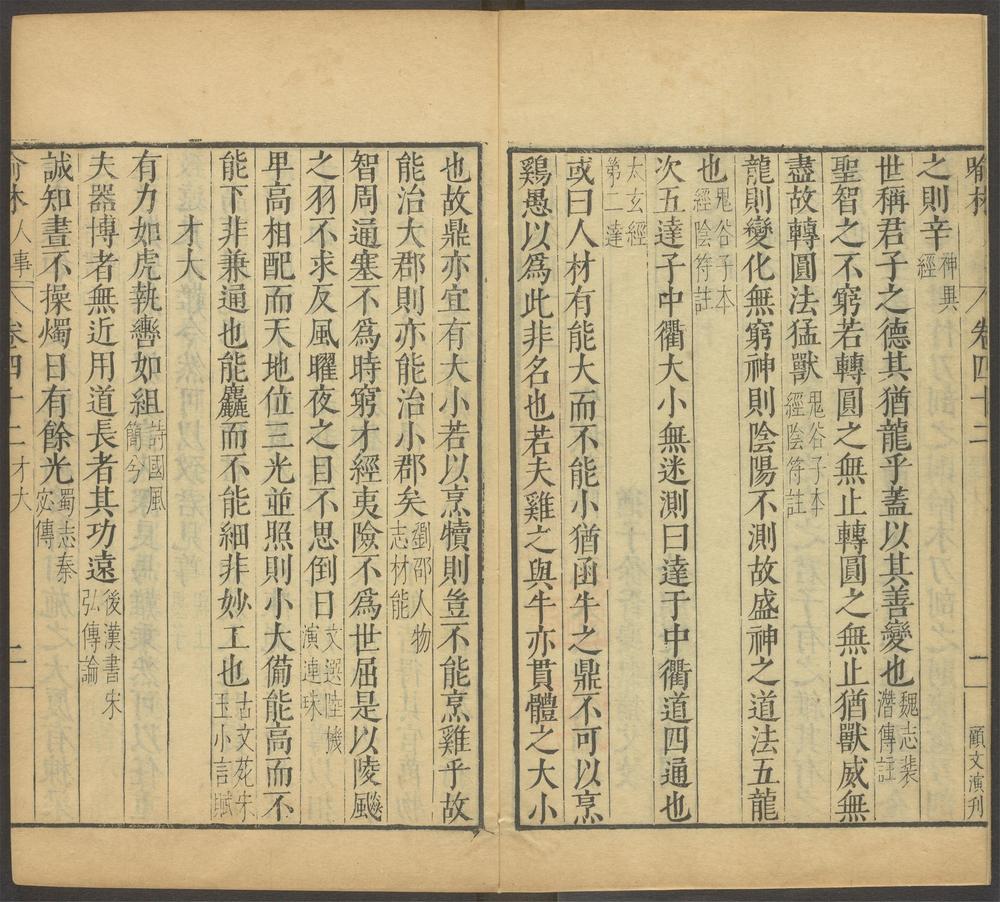 喻林 卷四十二 一 顧文演刊
之則辛神異經
世稱君子之德其猶龍乎蓋以其善變也魏志裴潛傳註
聖智之不窮若轉圓之無止轉圓之無止猶獸威無
盡故轉圓法猛獸鬼谷子本經陰符註
龍則變化無窮神則陰陽不測故盛神之道法五龍
也鬼谷子本經陰符註
次五達于中衢大小無迷測曰達于中衢道四通也
太玄經第二達
或曰人材有能大而不能小猶函牛之鼎不可以烹
鷄愚以爲此非名也若夫雞之與牛亦貫體之大小
也故鼎亦宜有大小若以烹犢則豈不能烹雞乎故
能治大郡則亦能治小郡矣劉邵人物志材能
智周通塞不爲時窮才經夷險不爲世屈是以陵飈
之羽不求反風曜夜之目不思倒日文選陸機演連珠
卑高相配而天地位三光並照則小大備能高而不
能下非兼通也能麤而不能細非妙工也古文苑宋玉小言賦
才大
有力如虎執轡如組詩國風簡兮
夫器博者無近用道長者其功遠後漢書宋弘傳論
誠知晝不操燭日有餘光蜀志秦宓傳
喻林人事 卷四十二才大 二